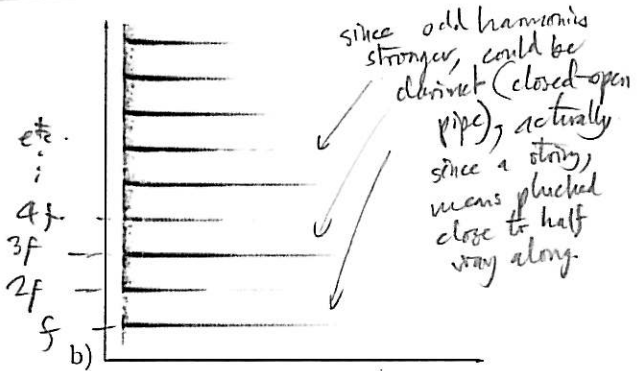 since odd harmonics
stronger, could be
clarinet (closed-open
pipe), actually
since a string,
means plucked
close to half
way along.
etc.
4f
3f
2f
f
b)